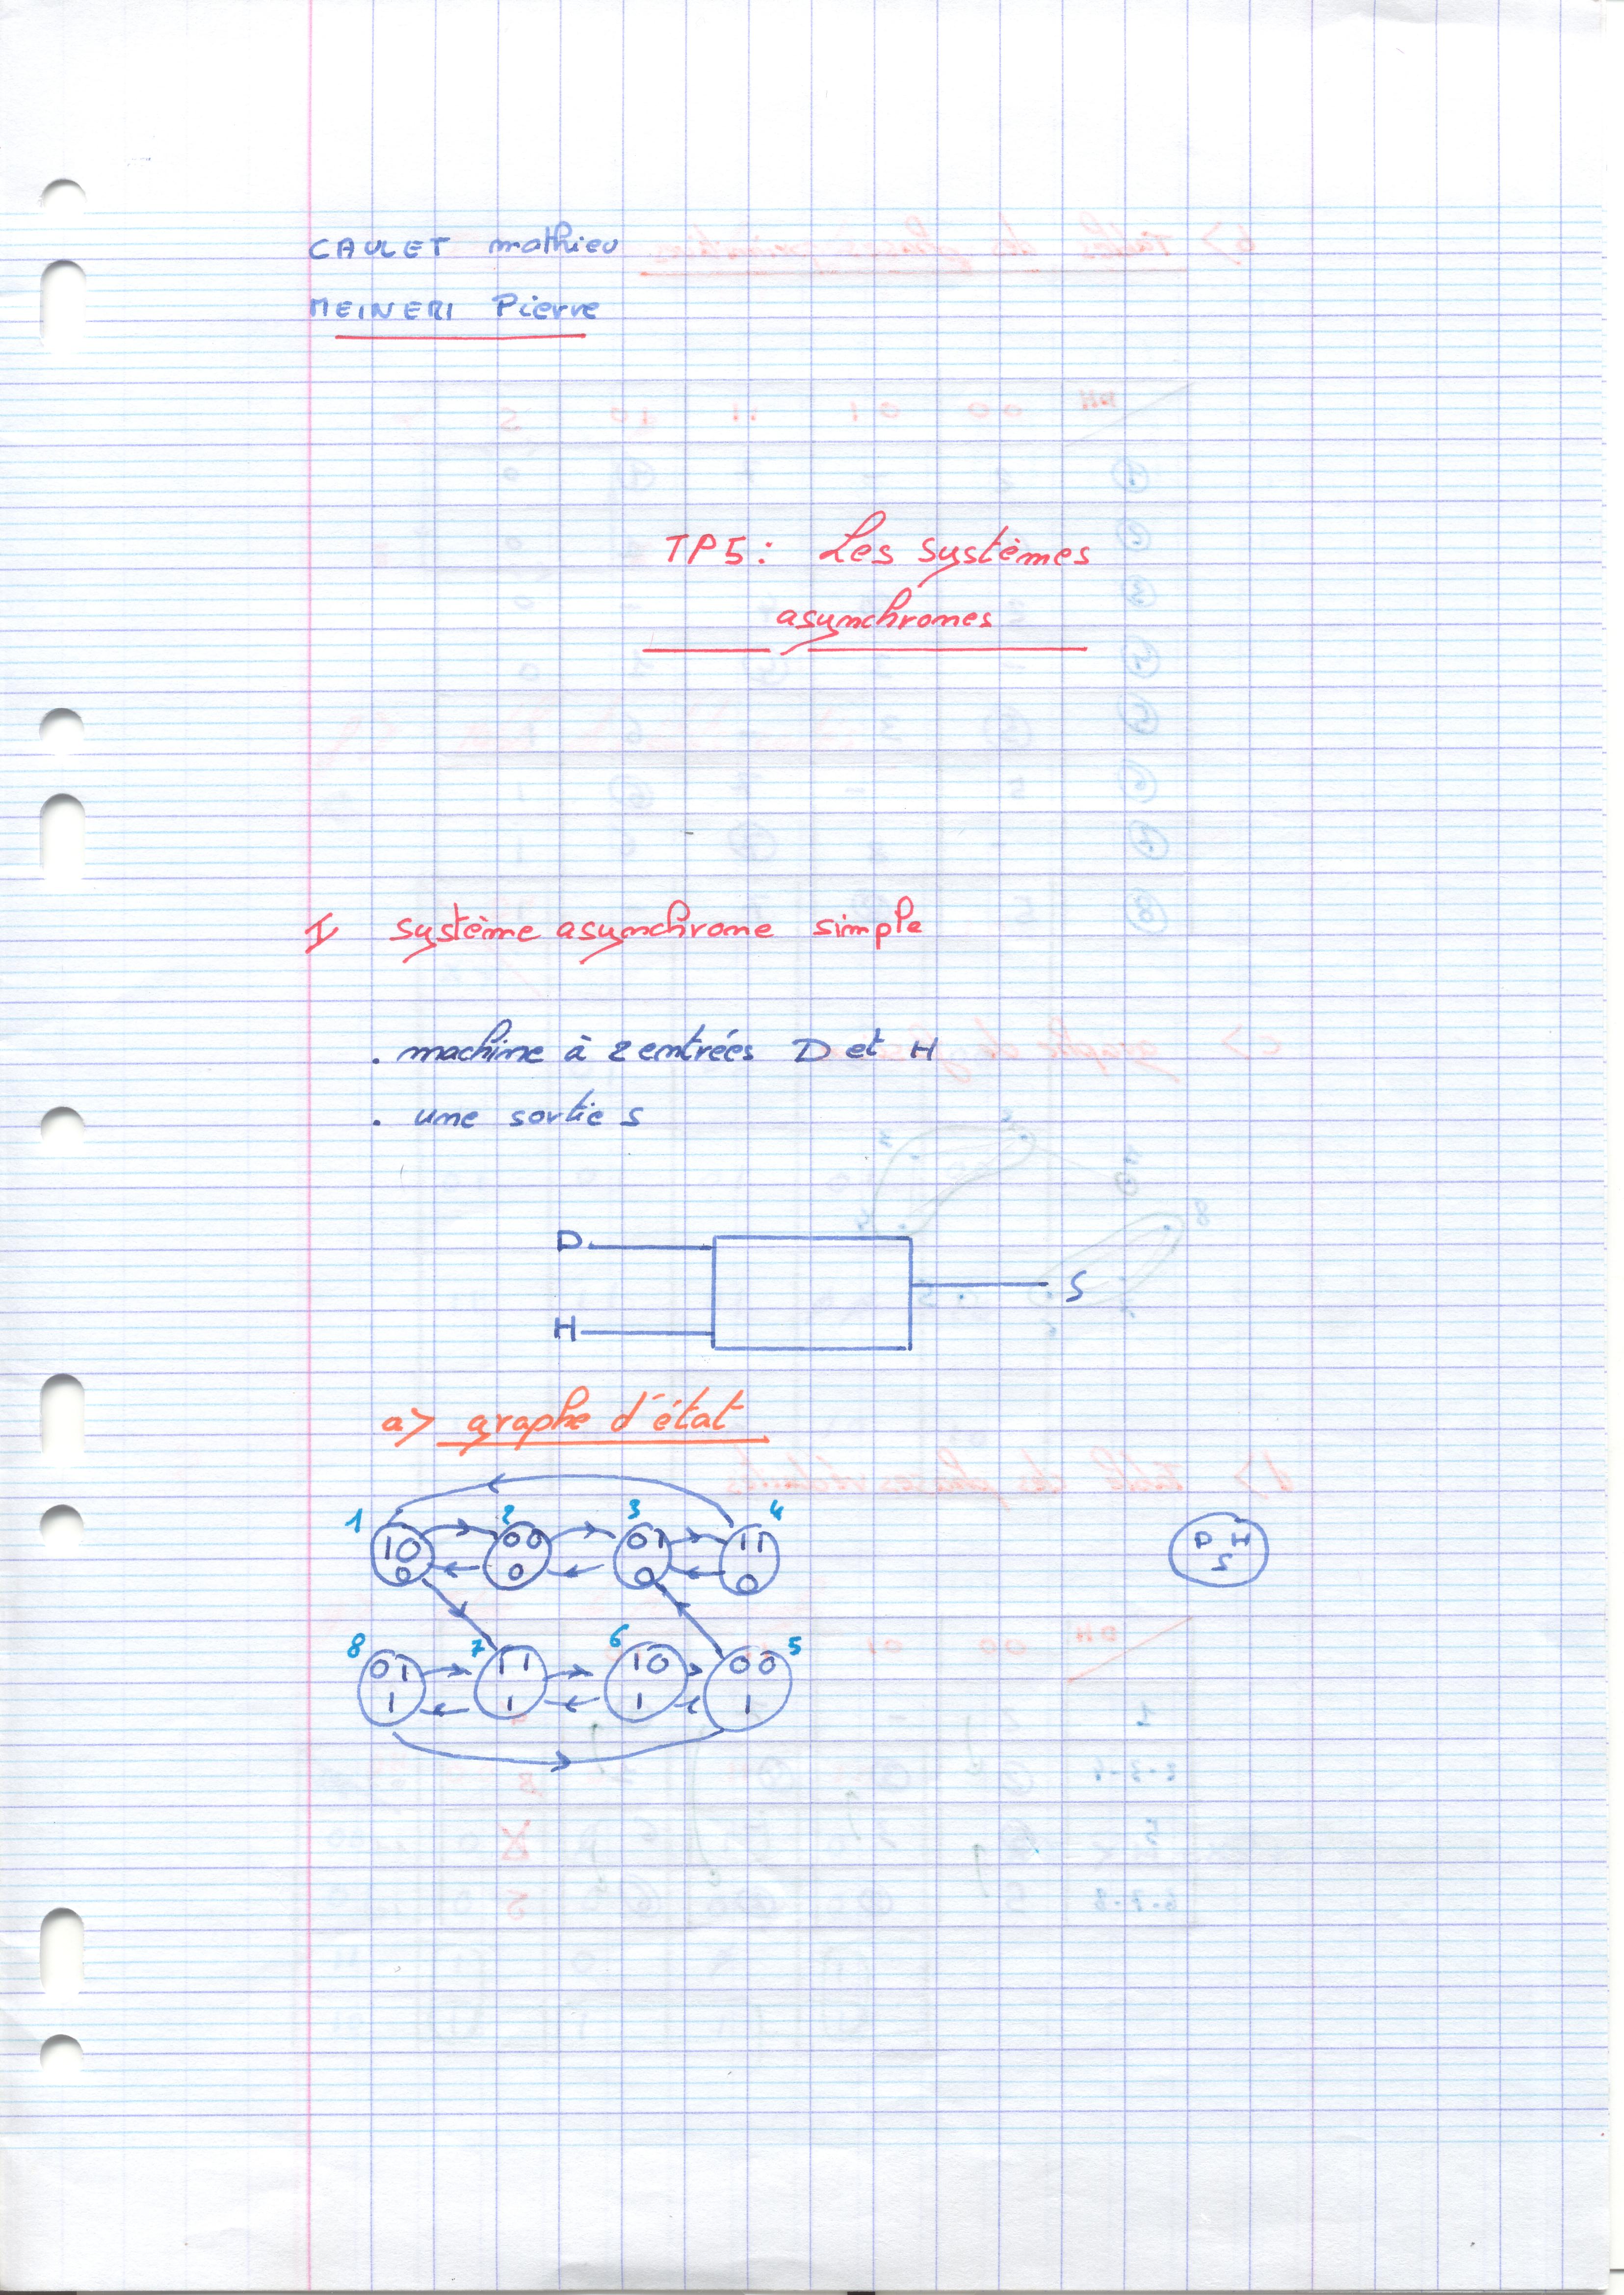 CAULET mathieu
MEINERI Pierre
TP5: Les systèmes
asynchromes
I système asynchrome simple
. machine à 2 entrées D et H
. une sortie S
D
S
H
a> graphe d'état
1 2 3 4
10 00 01 11
0 0 0 0
D H
S
8 7 6 5
01 11 10 00
1 1 1 1